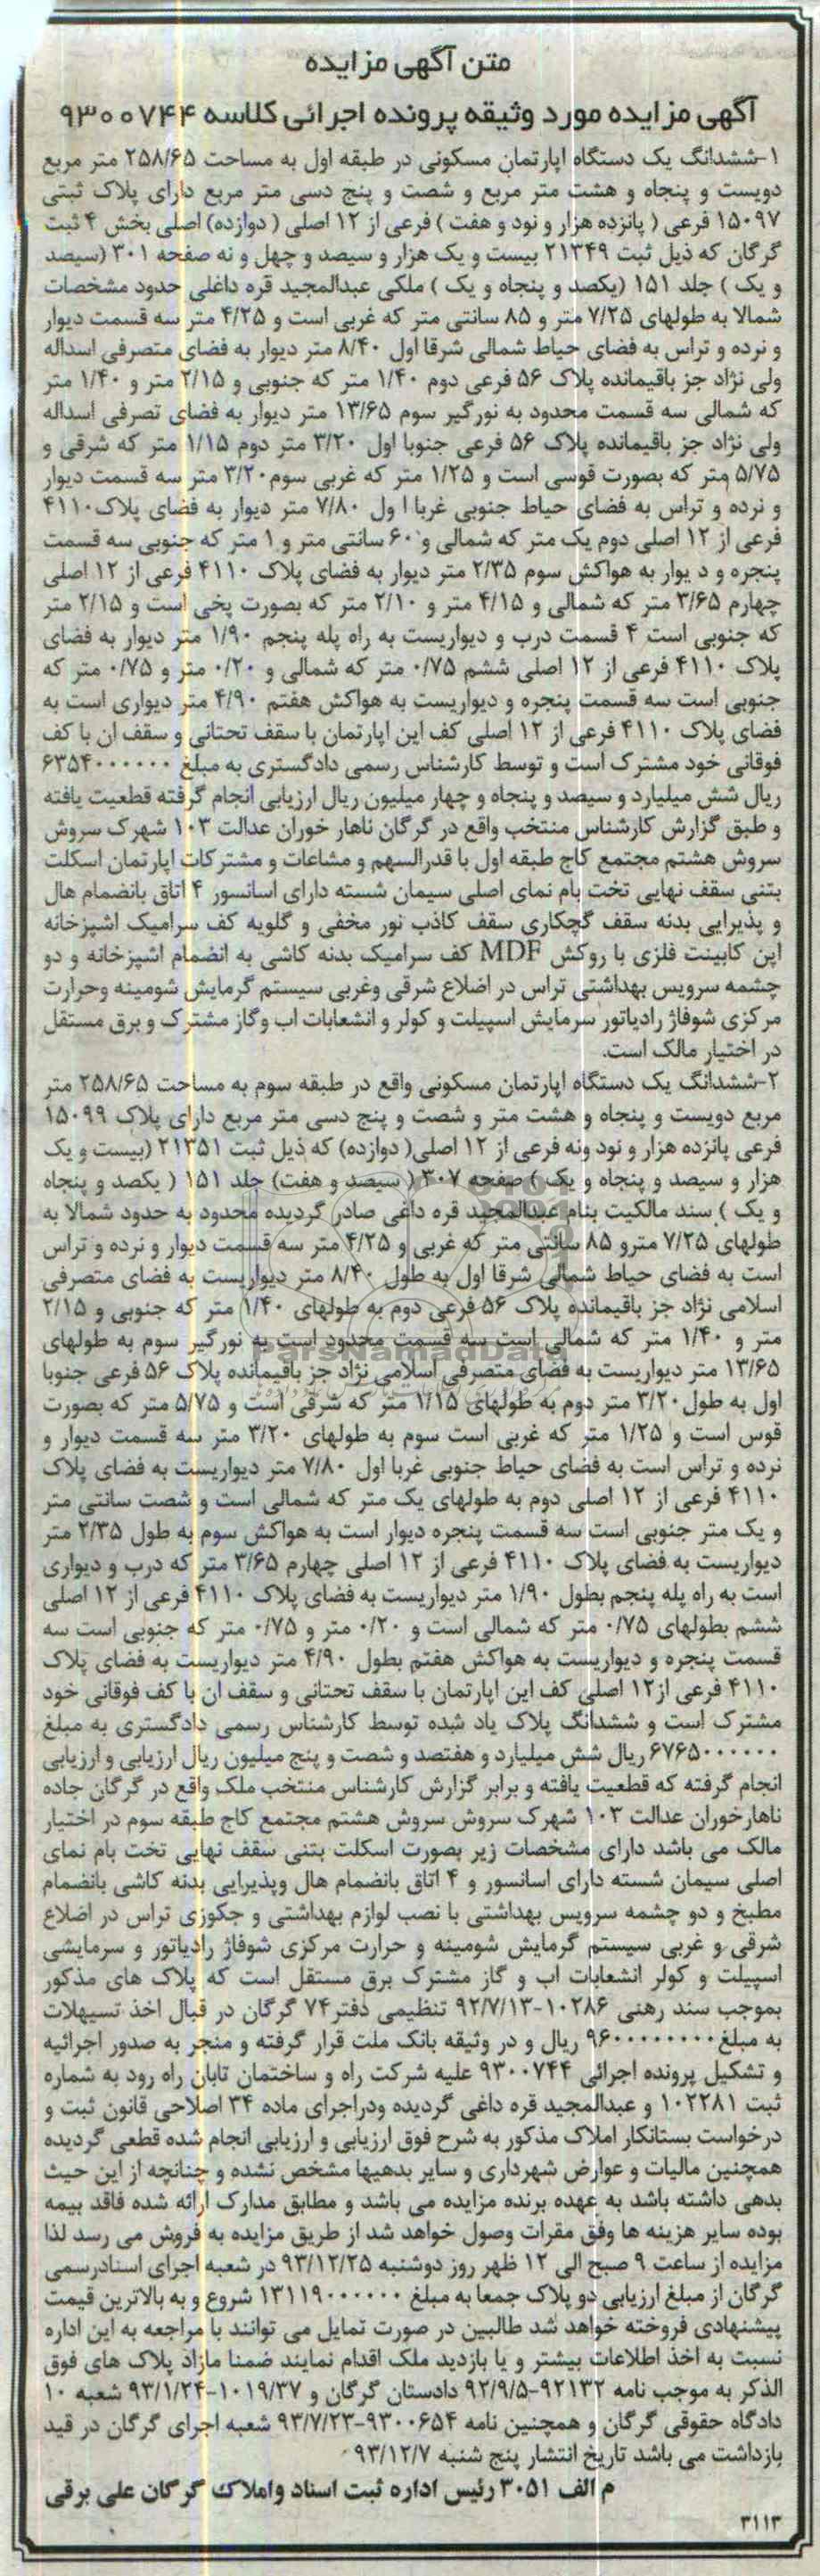 متن آگهی مزایده
آگهی مزایده مورد وثیقه پرونده اجرائی کلاسه ۹۳۰۰۷۴۴
۱-ششدانگ یک دستگاه اپارتمان مسکونی در طبقه اول به مساحت ۲۵۸/۶۵ متر مربع
دویست و پنجاه و هشت متر مربع و شصت و پنج دسی متر مربع دارای پلاک ثبتی
۱۵۰۹۷ فرعی ( پانزده هزار و نود و هفت ) فرعی از ۱۲ اصلی ( دوازده) اصلی بخش ۴ ثبت
گرگان که ذیل ثبت ۲۱۳۴۹ بیست و یک هزار و سیصد و چهل و نه صفحه ۳۰۱ (سیصد
و یک ) جلد ۱۵۱ (یکصد و پنجاه و یک ) ملکی عبدالمجید قره داغلی حدود مشخصات
شمالا به طولهای ۷/۲۵ متر و ۸۵ سانتی متر که غربی است و ۴/۲۵ متر سه قسمت دیوار
و نرده و تراس به فضای حیاط شمالی شرقا اول ۸/۴۰ متر دیوار به فضای متصرفی اسداله
ولی نژاد جز باقیمانده پلاک ۵۶ فرعی دوم ۱/۴۰ متر که جنوبی و ۲/۱۵ متر و ۱/۴۰ متر
که شمالی سه قسمت محدود به نورگیر سوم ۱۳/۶۵ متر دیوار به فضای تصرفی اسداله
ولی نژاد جز باقیمانده پلاک ۵۶ فرعی جنوبا اول ۳/۲۰ متر دوم ۱/۱۵ متر که شرقی و
۵/۷۵ متر که بصورت قوسی است و ۱/۲۵ متر که غربی سوم ۳/۲۰ متر سه قسمت دیوار
و نرده و تراس به فضای حیاط جنوبی غربا ا ول ۷/۸۰ متر دیوار به فضای پلاک ۴۱۱۰
فرعی از ۱۲ اصلی دوم یک متر که شمالی و ۶۰ سانتی متر و ۱ متر که جنوبی سه قسمت
پنجره و د یوار به هواکش سوم ۲/۳۵ متر دیوار به فضای پلاک ۴۱۱۰ فرعی از ۱۲ اصلی
چهارم ۳/۶۵ متر که شمالی و ۴/۱۵ متر و ۲/۱۰ متر که بصورت پخی است و ۲/۱۵ متر
که جنوبی است ۴ قسمت درب و دیواریست به راه پله پنجم ۱/۹۰ متر دیوار به فضای
پلاک ۴۱۱۰ فرعی از ۱۲ اصلی ششم ۰/۷۵ متر که شمالی و ۰/۲۰ متر و ۰/۷۵ متر که
جنوبی است سه قسمت پنجره و دیواریست به هواکش هفتم ۴/۹۰ متر دیواری است به
فضای پلاک ۴۱۱۰ فرعی از ۱۲ اصلی کف این اپارتمان با سقف تحتانی و سقف ان با کف
فوقانی خود مشترک است و توسط کارشناس رسمی دادگستری به مبلغ ۶۳۵۴۰۰۰۰۰۰
ریال شش میلیارد و سیصد و پنجاه و چهار میلیون ریال ارزیابی انجام گرفته قطعیت یافته
و طبق گزارش کارشناس منتخب واقع در گرگان ناهار خوران عدالت ۱۰۳ شهرک سروش
سروش هشتم مجتمع کاج طبقه اول با قدرالسهم و مشاعات و مشترکات اپارتمان اسکلت
بتنی سقف نهایی تخت بام نمای اصلی سیمان شسته دارای اسانسور ۴ اتاق بانضمام هال
و پذیرایی بدنه سقف گچکاری سقف کاذب نور مخفی و گلویه کف سرامیک اشپزخانه
اپن کابینت فلزی با روکش MDF کف سرامیک بدنه کاشی به انضمام اشپزخانه و دو
چشمه سرویس بهداشتی تراس در اضلاع شرقی وغربی سیستم گرمایش شومینه وحرارت
مرکزی شوفاژ رادیاتور سرمایش اسپیلت و کولر و انشعابات اب وگاز مشترک و برق مستقل
در اختیار مالک است.
۲-ششدانگ یک دستگاه اپارتمان مسکونی واقع در طبقه سوم به مساحت ۲۵۸/۶۵ متر
مربع دویست و پنجاه و هشت متر و شصت و پنج دسی متر مربع دارای پلاک ۱۵۰۹۹
فرعی پانزده هزار و نود ونه فرعی از ۱۲ اصلی( دوازده) که ذیل ثبت ۲۱۳۵۱ (بیست و یک
هزار و سیصد و پنجاه و یک ) صفحه ۳۰۷ ( سیصد و هفت) جلد ۱۵۱ ( یکصد و پنجاه
و یک ) سند مالکیت بنام عبدالمجید قره داغی صادر گردیده محدود به حدود شمالا به
طولهای ۷/۲۵ مترو ۸۵ سانتی متر که غربی و ۴/۲۵ متر سه قسمت دیوار و نرده و تراس
است به فضای حیاط شمالی شرقا اول به طول ۸/۴۰ متر دیواریست به فضای متصرفی
اسلامی نژاد جز باقیمانده پلاک ۵۶ فرعی دوم به طولهای ۱/۴۰ متر که جنوبی و ۲/۱۵
متر و ۱/۴۰ متر که شمالی است سه قسمت محدود است به نورگیر سوم به طولهای
۱۳/۶۵ متر دیواریست به فضای متصرفی اسلامی نژاد جز باقیمانده پلاک ۵۶ فرعی جنوبا
اول به طول ۳/۲۰ متر دوم به طولهای ۱/۱۵ متر که شرقی است و ۵/۷۵ متر که بصورت
قوس است و ۱/۲۵ متر که غربی است سوم به طولهای ۳/۲۰ متر سه قسمت دیوار و
نرده و تراس است به فضای حیاط جنوبی غربا اول ۷/۸۰ متر دیواریست به فضای پلاک
۴۱۱۰ فرعی از ۱۲ اصلی دوم به طولهای یک متر که شمالی است و شصت سانتی متر
و یک متر جنوبی است سه قسمت پنجره دیوار است به هواکش سوم به طول ۲/۳۵ متر
دیواریست به فضای پلاک ۴۱۱۰ فرعی از ۱۲ اصلی چهارم ۳/۶۵ متر که درب و دیواری
است به راه پله پنجم بطول ۱/۹۰ متر دیواریست به فضای پلاک ۴۱۱۰ فرعی از ۱۲ اصلی
ششم بطولهای ۰/۷۵ متر که شمالی است و ۰/۲۰ متر و ۰/۷۵ متر که جنوبی است سه
قسمت پنجره و دیواریست به هواکش هفتم بطول ۴/۹۰ متر دیواریست به فضای پلاک
۴۱۱۰ فرعی از۱۲ اصلی کف این اپارتمان با سقف تحتانی و سقف ان با کف فوقانی خود
مشترک است و ششدانگ پلاک یاد شده توسط کارشناس رسمی دادگستری به مبلغ
۶۷۶۵۰۰۰۰۰۰ ریال شش میلیارد و هفتصد و شصت و پنج میلیون ریال ارزیابی و ارزیابی
انجام گرفته که قطعیت یافته و برابر گزارش کارشناس منتخب ملک واقع در گرگان جاده
ناهارخوران عدالت ۱۰۳ شهرک سروش سروش هشتم مجتمع کاج طبقه سوم در اختیار
مالک می باشد دارای مشخصات زیر بصورت اسکلت بتنی سقف نهایی تخت بام نمای
اصلی سیمان شسته دارای اسانسور و ۴ اتاق بانضمام هال وپذیرایی بدنه کاشی بانضمام
مطبخ و دو چشمه سرویس بهداشتی با نصب لوازم بهداشتی و جکوزی تراس در اضلاع
شرقی و غربی سیستم گرمایش شومینه و حرارت مرکزی شوفاژ رادیاتور و سرمایشی
اسپیلت و کولر انشعابات اب و گاز مشترک برق مستقل است که پلاک های مذکور
بموجب سند رهنی ۱۰۲۸۶-۹۲/۷/۱۳ تنظیمی دفتر ۷۴ گرگان در قبال اخذ تسیهلات
به مبلغ ۹۶۰۰۰۰۰۰۰۰ ریال و در وثیقه بانک ملت قرار گرفته و منجر به صدور اجرائیه
و تشکیل پرونده اجرائی ۹۳۰۰۷۴۴ علیه شرکت راه و ساختمان تابان راه رود به شماره
ثبت ۱۰۲۲۸۱ و عبدالمجید قره داغی گردیده ودراجرای ماده ۳۴ اصلاحی قانون ثبت و
درخواست بستانکار املاک مذکور به شرح فوق ارزیابی و ارزیابی انجام شده قطعی گردیده
همچنین مالیات و عوارض شهرداری و سایر بدهیها مشخص نشده و چنانچه از این حیث
بدهی داشته باشد به عهده برنده مزایده می باشد و مطابق مدارک ارائه شده فاقد بیمه
بوده سایر هزینه ها وفق مقرات وصول خواهد شد از طریق مزایده به فروش می رسد لذا
مزایده از ساعت ۹ صبح الی ۱۲ ظهر روز دوشنبه ۹۳/۱۲/۲۵ در شعبه اجرای اسنادرسمی
گرگان از مبلغ ارزیابی دو پلاک جمعا به مبلغ ۱۳۱۱۹۰۰۰۰۰۰ شروع و به بالاترین قیمت
پیشنهادی فروخته خواهد شد طالبین در صورت تمایل می توانند با مراجعه به این اداره
نسبت به اخذ اطلاعات بیشتر و یا بازدید ملک اقدام نمایند ضمنا مازاد پلاک های فوق
الذکر به موجب نامه ۹۲۱۳۲-۹۲/۹/۵ دادستان گرگان و ۱۰۱۹/۳۷-۹۳/۱/۲۴ شعبه ۱۰
دادگاه حقوقی گرگان و همچنین نامه ۹۳۰۰۶۵۴-۹۳/۷/۲۳ شعبه اجرای گرگان در قید
بازداشت می باشد تاریخ انتشار پنج شنبه ۹۳/۱۲/۷
م الف ۳۰۵۱ رئیس اداره ثبت اسناد واملاک گرگان علی برقی
۳۱۱۳
ParsNamadData